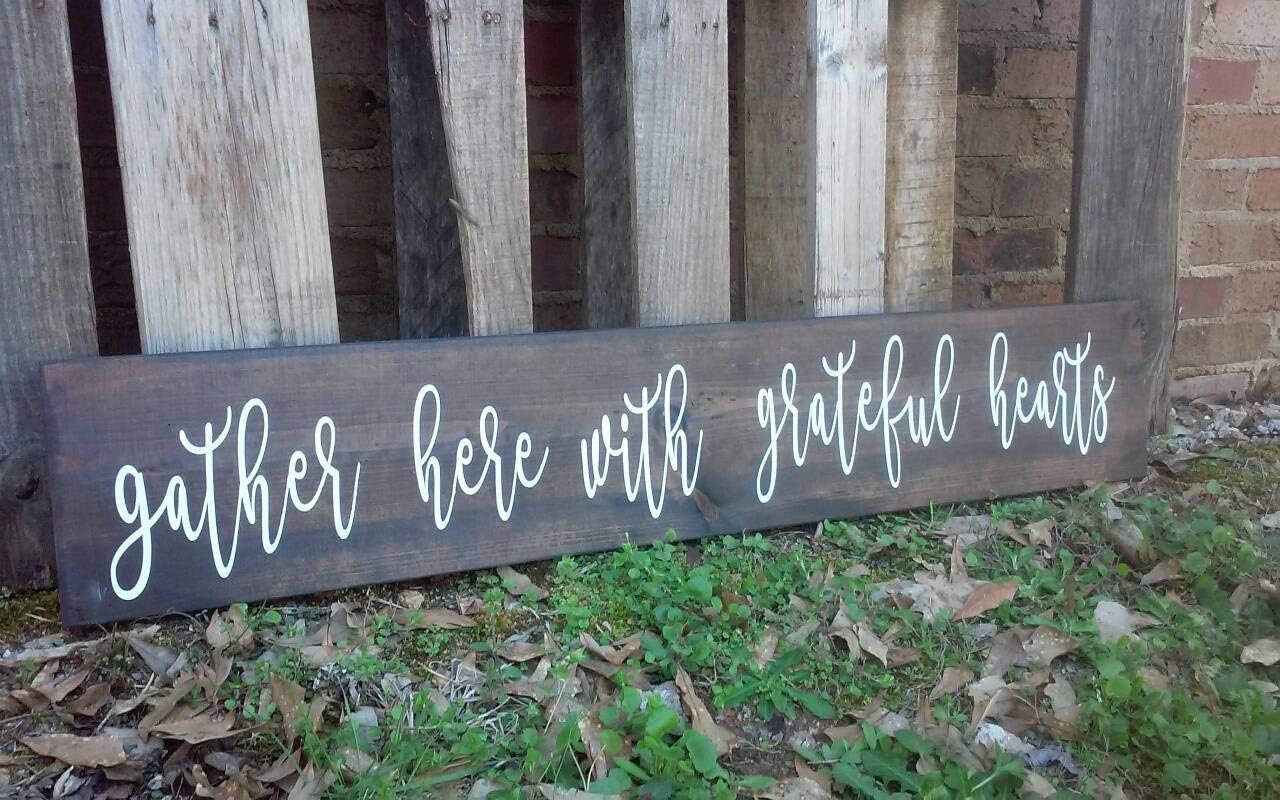 gather here with grateful hearts